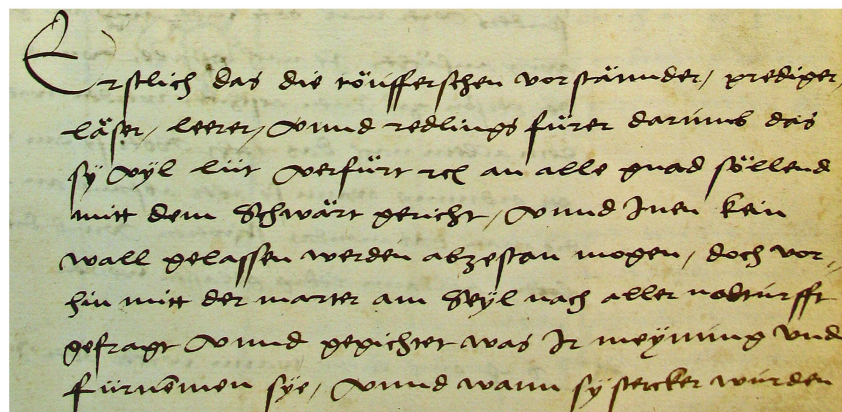 Erstlich das die töüfferschen vorständer, prediger,
läser, leerer, unnd redlings fürer darumb das
sy vyl lüt verfürt etc an alle gnad söllend
mitt dem Schwärt gericht, unnd Inen kein
wall gelassen werden abzestan mogen, doch vor-,
hin mitt der marter am Seyl nach aller nodturfft
gefragt unnd gepichtet was Ir meynung und
fürnemen sye, unnd wann sy stercker wurden